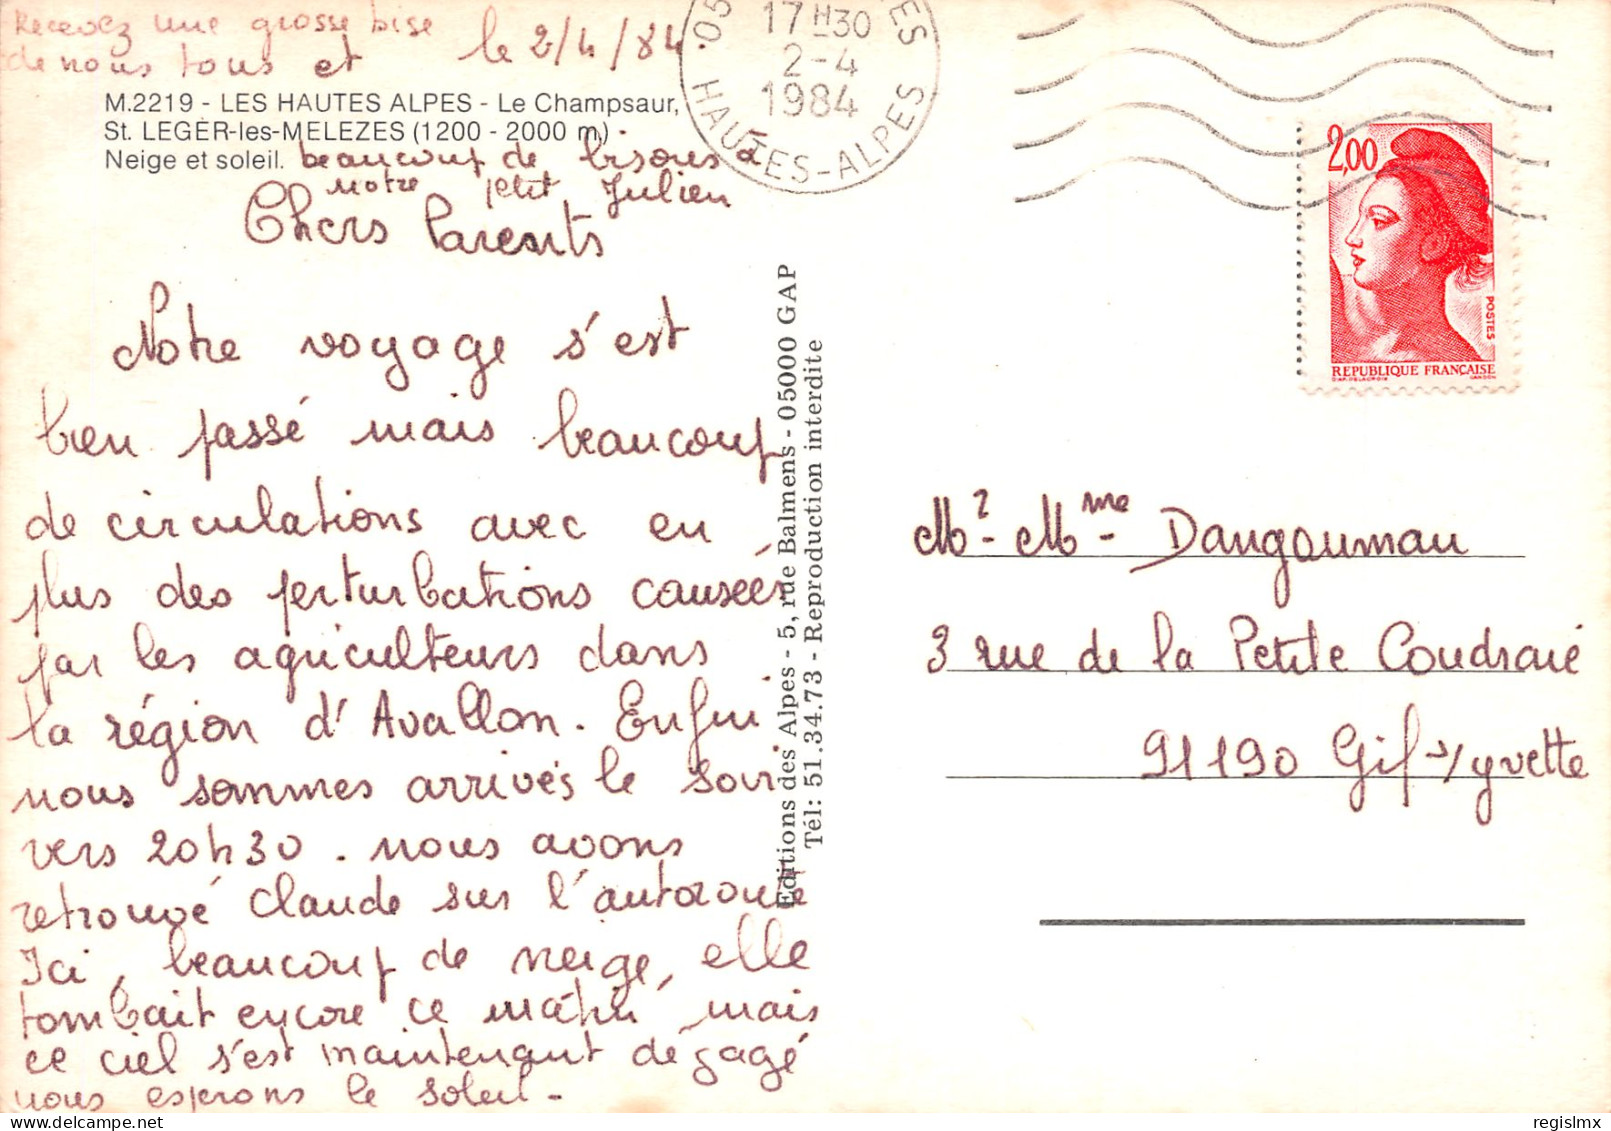 Recevez une grosse bise
de nous tous et
le 2/4/84.
M.2219 - LES HAUTES ALPES - Le Champsaur,
St. LEGER-les-MELEZES (1200 - 2000 m).
Neige et soleil.
beaucoup de bisous à
notre petit Julien
Chers Parents
Notre voyage s'est
bien passé mais beaucoup
de circulations avec en
plus des perturbations causées
par les agriculteurs dans
la région d'Avallon. Enfin
nous sommes arrivés le soir
vers 20h30. nous avons
retrouvé Claude sur l'autoroute
Ici, beaucoup de neige, elle
tombait encore ce matin, mais
ce ciel s'est maintenant dégagé
nous esperons le soleil-
Editions des Alpes - 5, rue Balmens - 05000 GAP
Tél: 51.34.73 - Reproduction interdite
05
ES
17H30
2-4
1984
HAUTES-ALPES
2,00
POSTES
REPUBLIQUE FRANÇAISE
D'AP. DELACROIX
GANDON
Mr - Mme Dangouman
3 rue de la Petite Coudraie
91190 Gif-s/yvette
regislmx